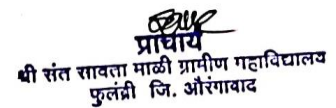 प्राचार्य
श्री संत सावता माळी ग्रामीण महाविद्यालय
फुलंब्री जि. औरंगाबाद